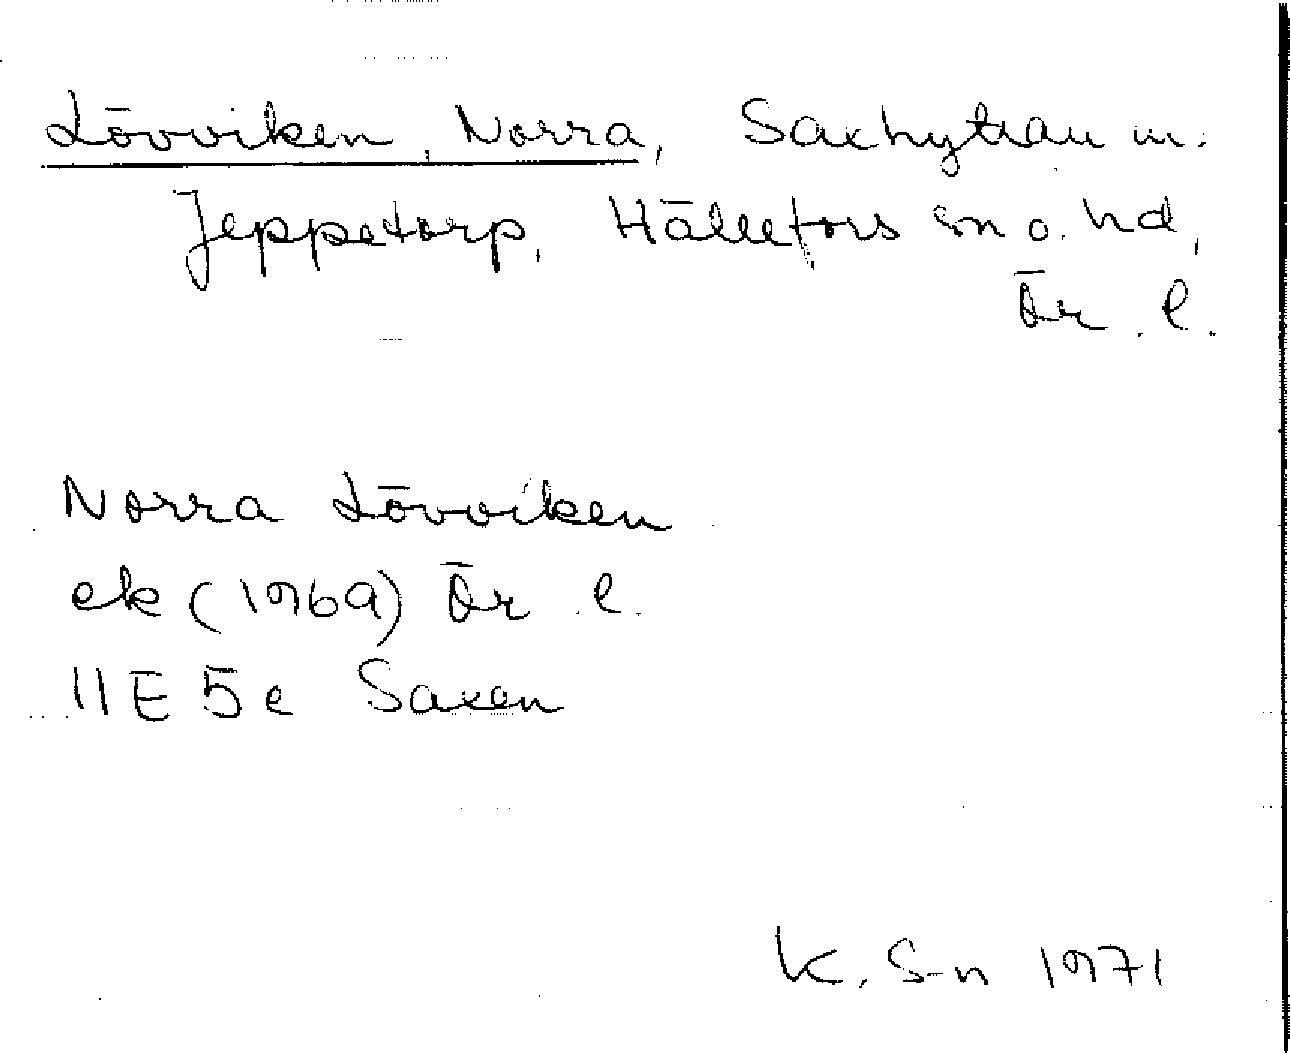 Lövviken, Norra, Saxhyttan m.
Jeppetorp, Hällefors sn o. hd,
Ör. l.
Norra Lövviken
ek (1969) Ör. l.
11E 5e Saxen
K. S-n 1971